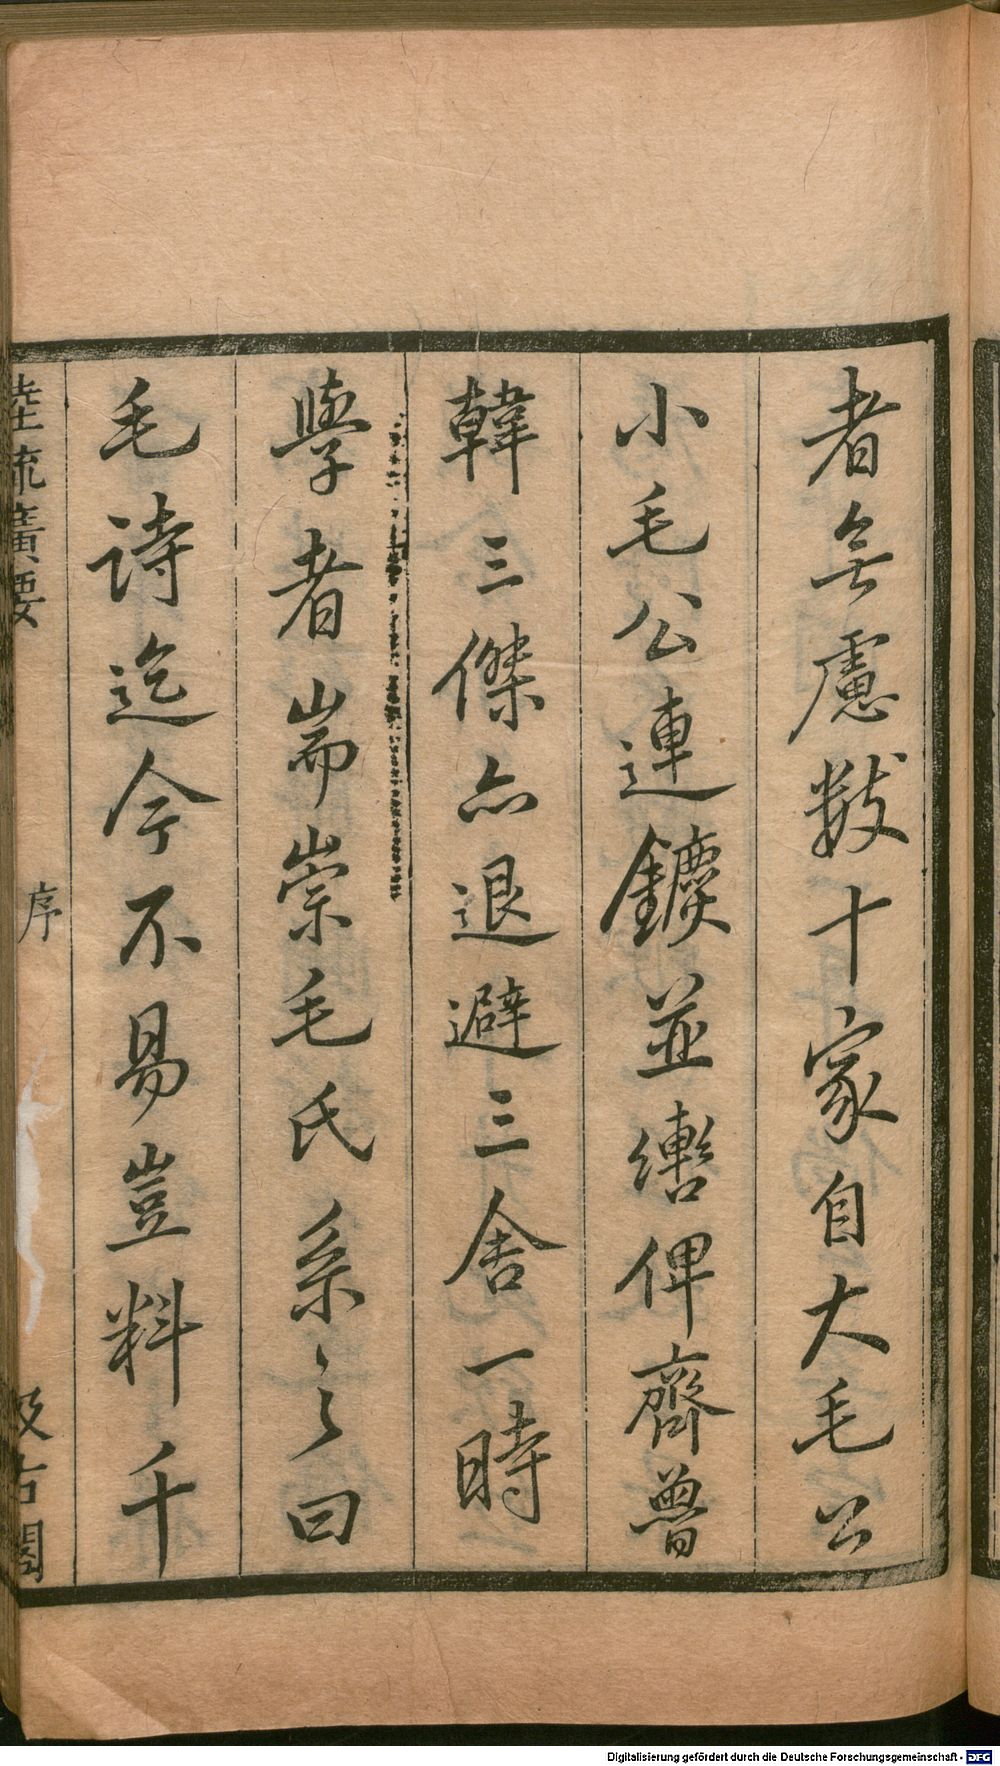 者無慮數十家自大毛公
小毛公連鑣並轡俾齊魯
韓三傑亦退避三舍一時
學者耑崇毛氏系之曰
毛詩迄今不易豈料千
陸疏廣要 序 汲古閣
Digitalisierung gefördert durch die Deutsche Forschungsgemeinschaft - DFG